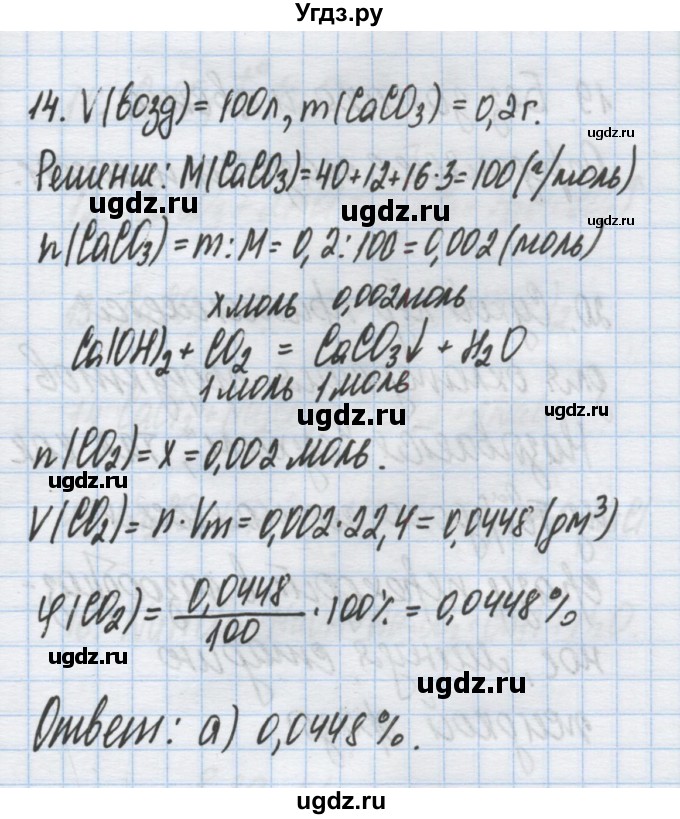 Угдз.ру
14. V(возд) = 100л, m(CaCO₃) = 0,2г.
ugdz.ru
Решение: M(CaCO₃)=40+12+16·3=100(г/моль)
ugdz.ru ugdz.ru ugdz.ru
n(CaCO₃) = m:M = 0,2:100=0,002(моль)
x моль 0,002моль
ugdz.ru
Ca(OH)₂ + CO₂ = CaCO₃↓ + H₂O
1 моль 1 моль
ugdz.ru ugdz.ru
n(CO₂) = x = 0,002 моль.
ugdz.ru ugdz.ru
V(CO₂) = n·Vm = 0,002·22,4 = 0,0448(дм³)
ugdz.ru
φ(CO₂) = 0,0448/100 · 100% = 0,0448%
ugdz.ru ugdz.ru
Ответ: а) 0,0448%.
ugdz.ru
ugdz.ru